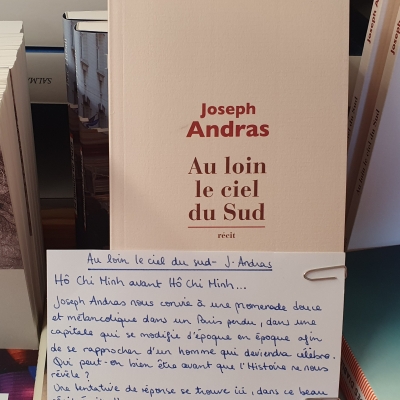 Joseph
Andras
Au loin
le ciel
du Sud
récit
Au loin le ciel du sud - J. Andras
Hô Chi Minh avant Hô Chi Minh...
Joseph Andras nous convie à une promenade douce
et mélancolique dans un Paris perdu, dans une
capitale qui se modifie d'époque en époque afin
de se rapprocher d'un homme qui deviendra célèbre.
Qui peut-on bien être avant que l'Histoire ne nous
révèle ?
Une tentative de réponse se trouve ici, dans ce beau